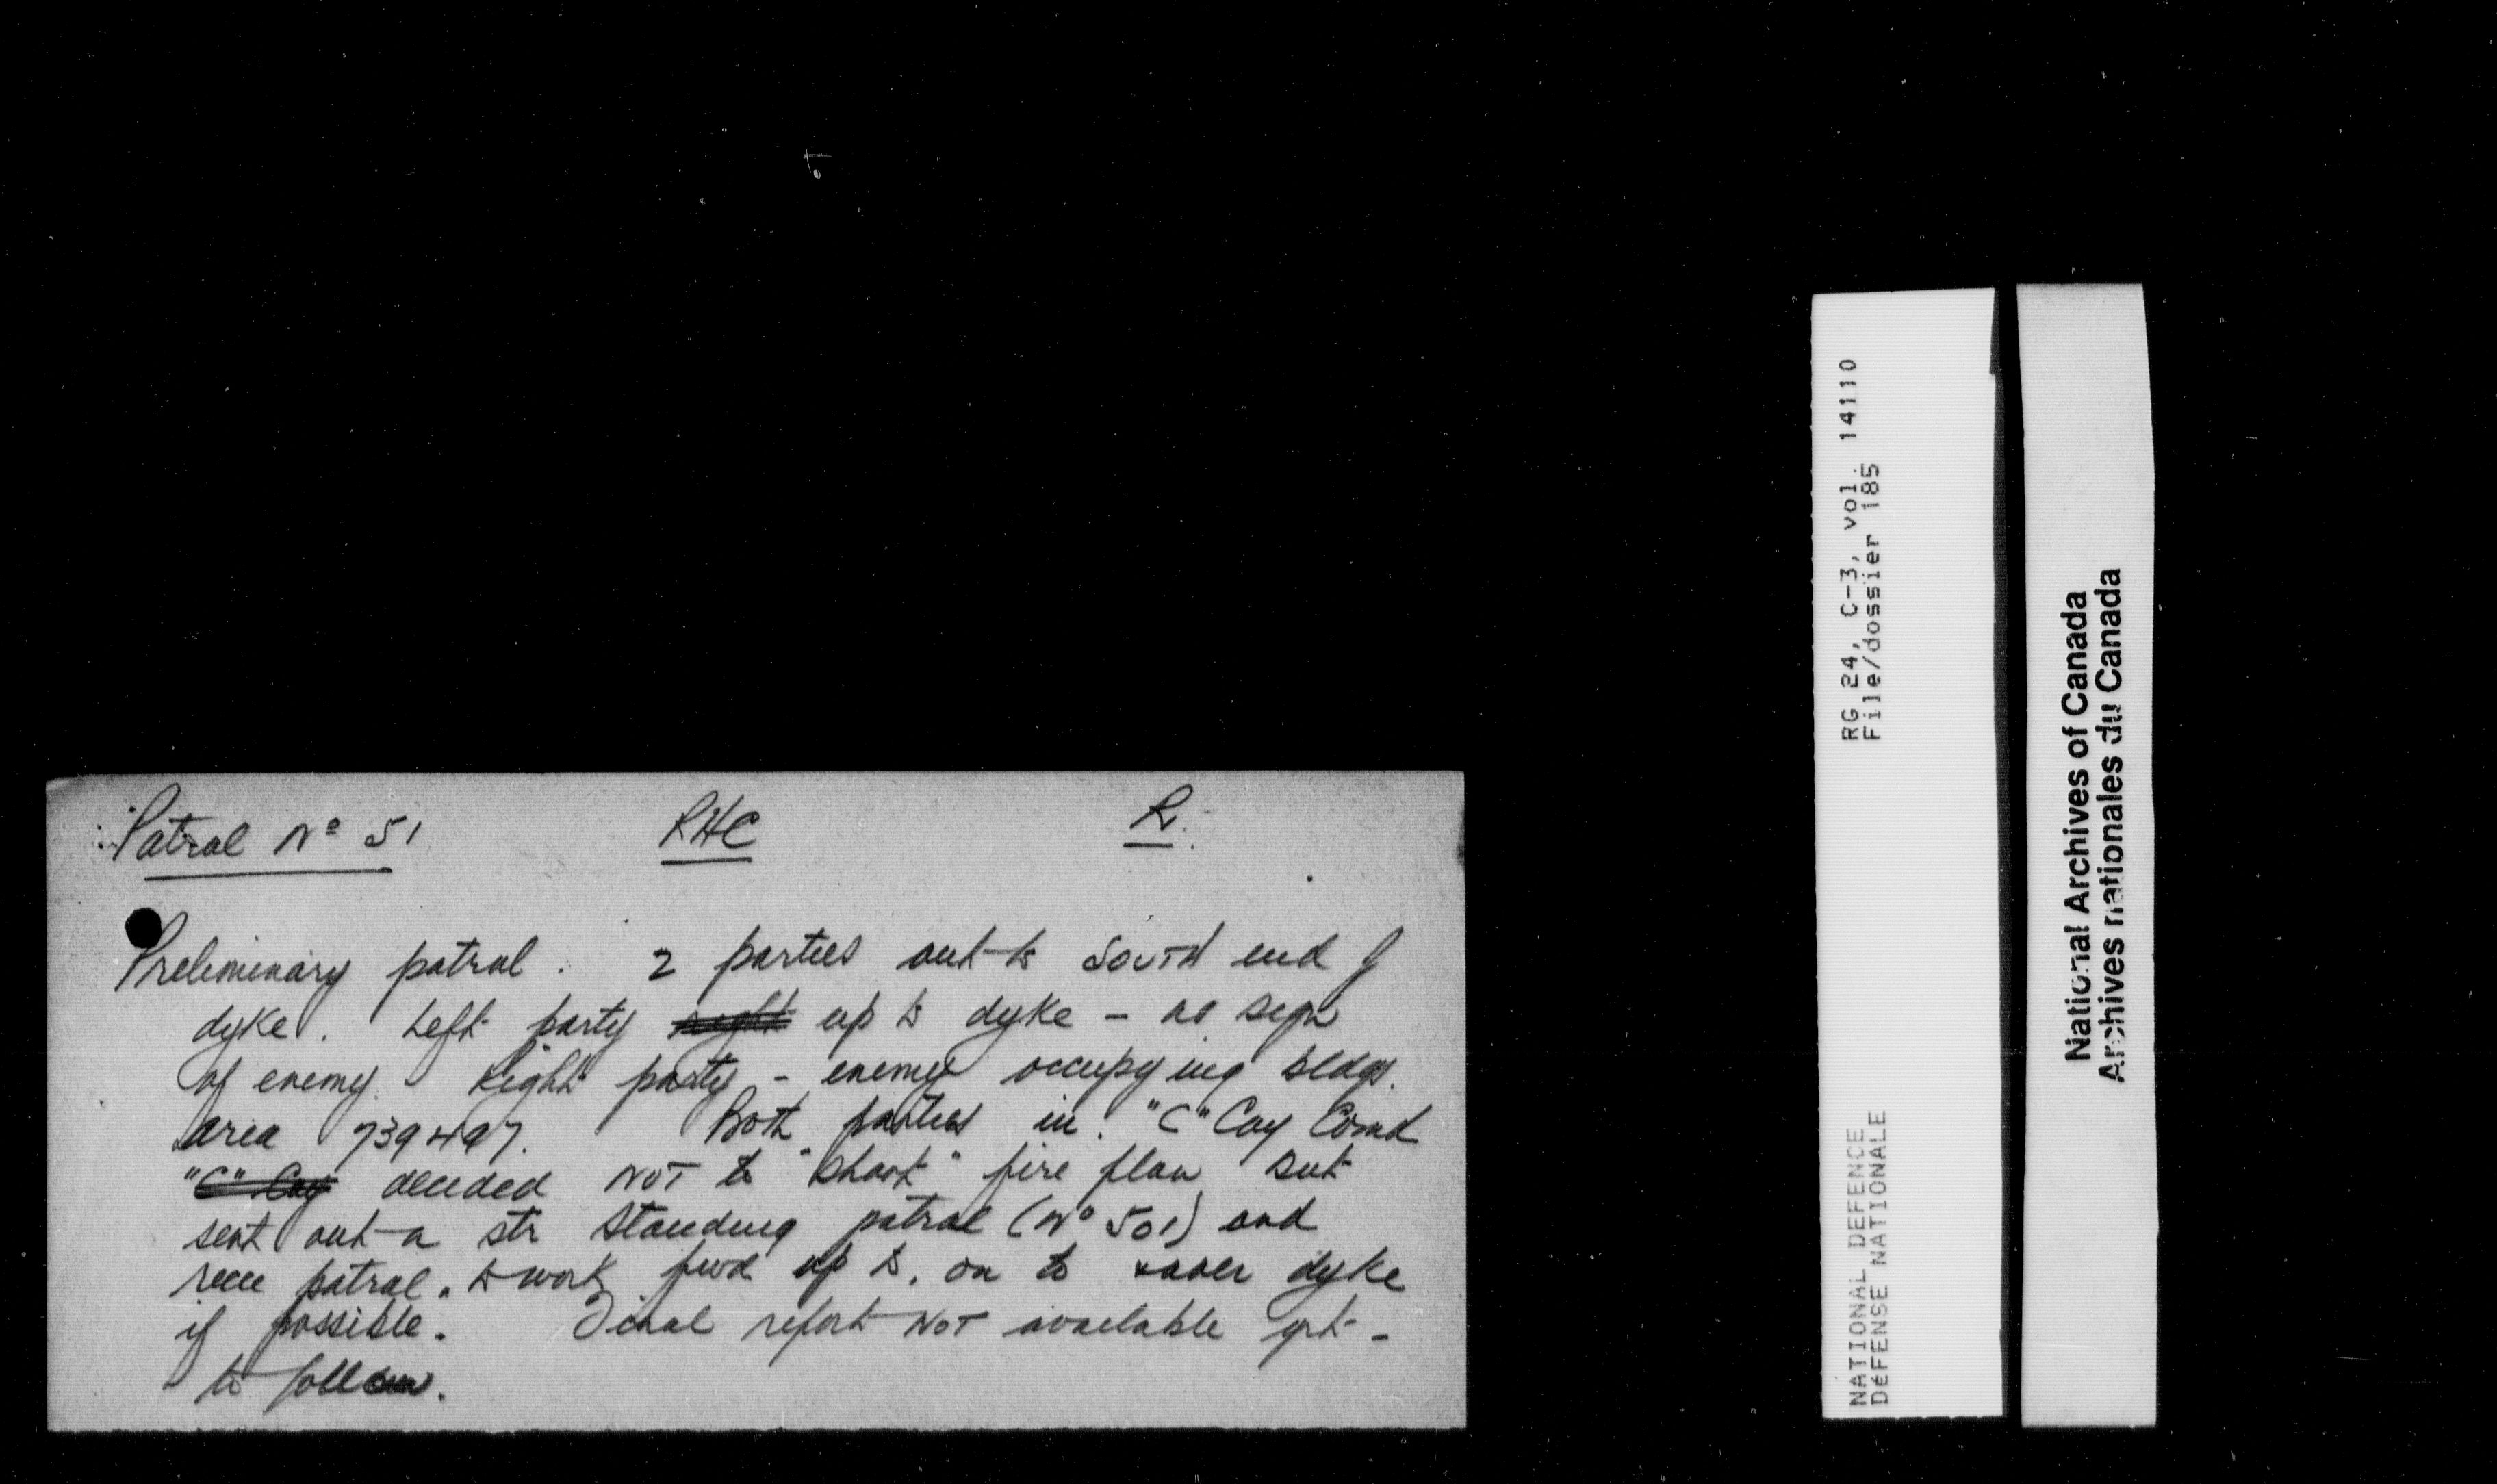 Patrol Nº 51 RHC R.
Preliminary patrol. 2 parties out to SOUTH end of
dyke. Left party up to dyke - no sign
of enemy. Right party - enemy occupying bldgs.
area 739497. Both parties in. "C" Coy Comd
"C" Coy decided NOT to "shoot" fire plan but
sent out a str standing patrol (Nº 501) and
recce patrol. to work fwd up to, on to dyke
if possible. Final report NOT available yet -
to follow.
RG 24, C-3, vol. 14110
File/dossier 185
NATIONAL DEFENCE
DÉFENSE NATIONALE
National Archives of Canada
Archives nationales du Canada